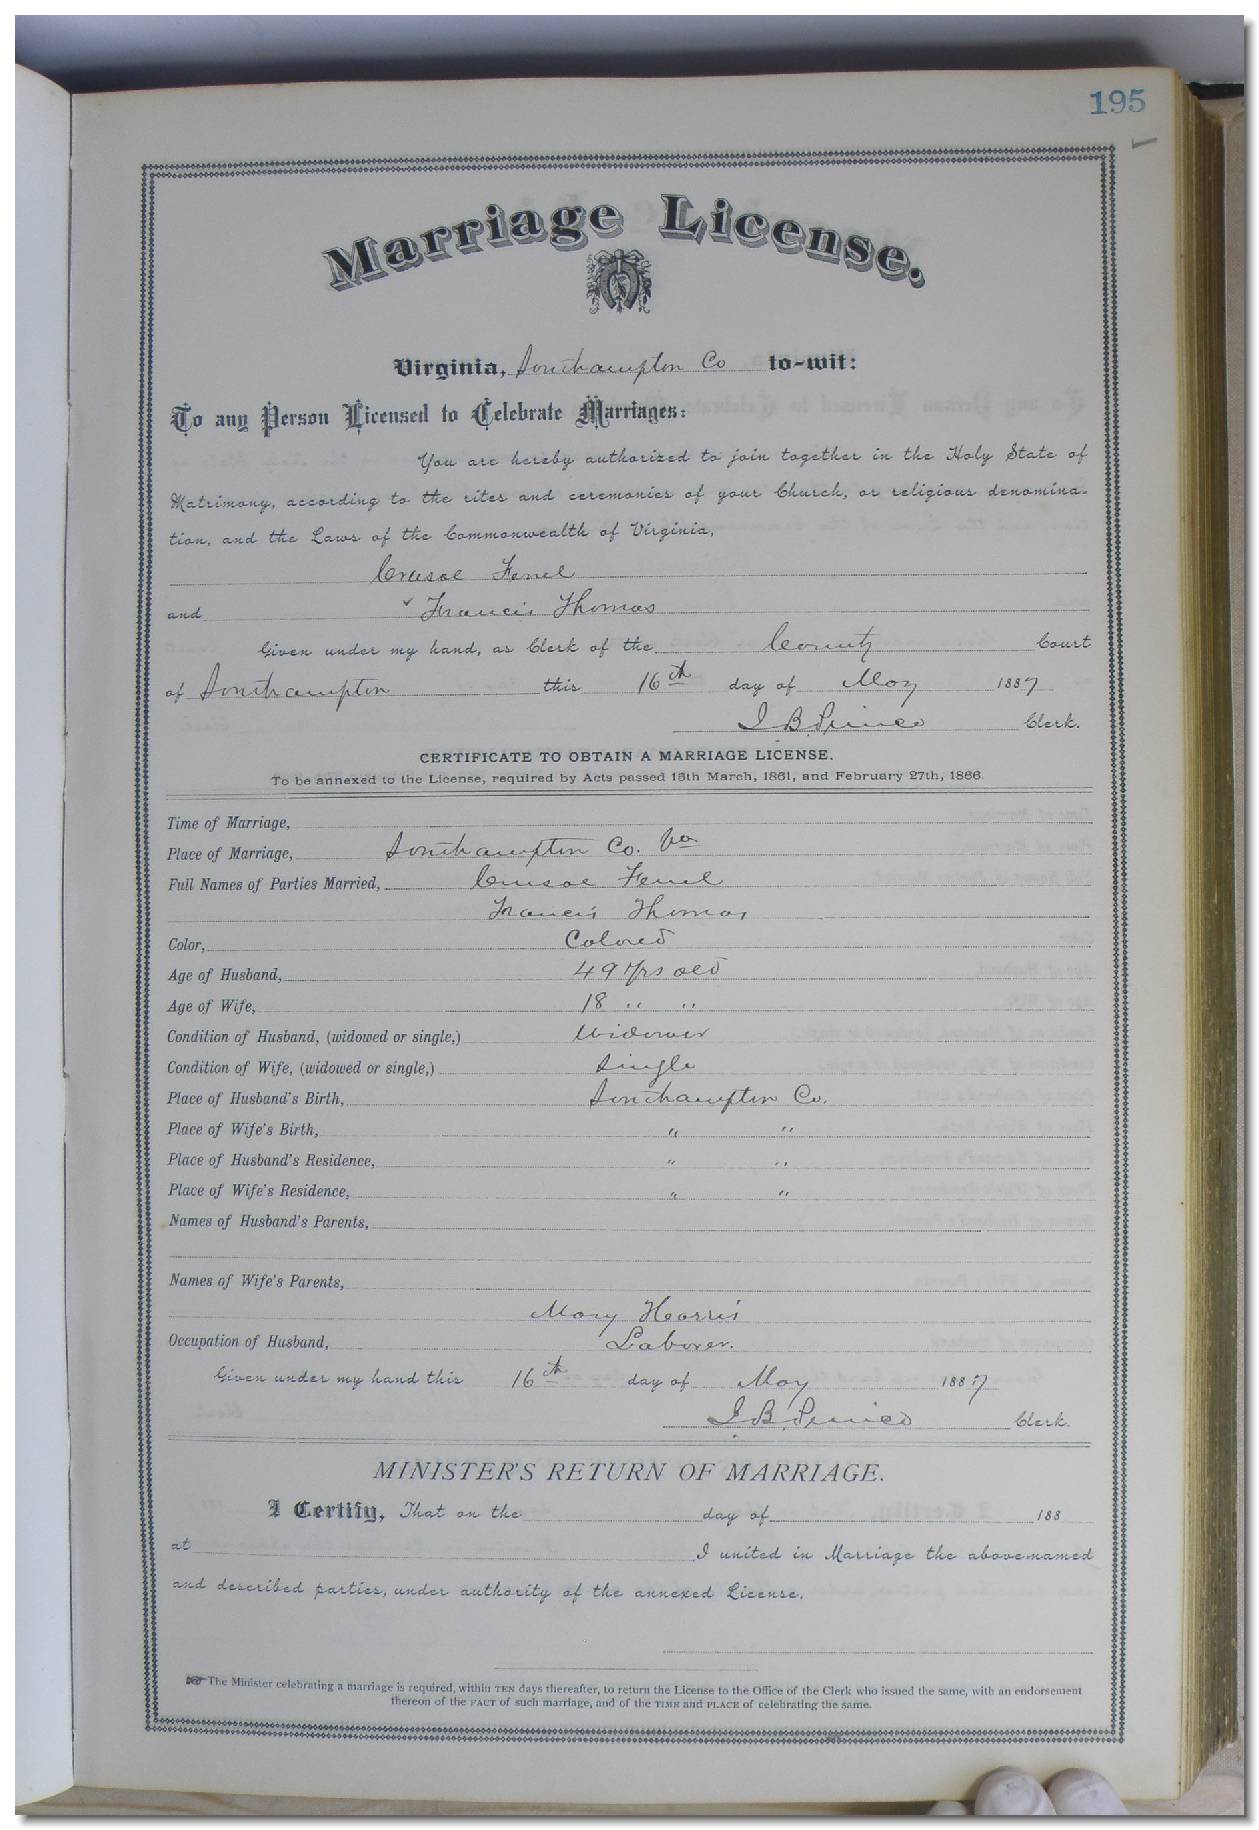 195
Marriage License.
Virginia, Southampton Co to-wit:
To any Person Licensed to Celebrate Marriages:
You are hereby authorized to join together in the Holy State of
Matrimony, according to the rites and ceremonies of your Church, or religious denomina-
tion, and the Laws of the Commonwealth of Virginia,
Crusoe
and Francis Thomas
Given under my hand, as Clerk of the County Court
of Southampton this 16th day of May 1887
J B Prince Clerk.
CERTIFICATE TO OBTAIN A MARRIAGE LICENSE.
To be annexed to the License, required by Acts passed 15th March, 1861, and February 27th, 1866.
Time of Marriage,
Place of Marriage, Southampton Co. Va
Full Names of Parties Married, Crusoe
Francis Thomas
Color, Colored
Age of Husband, 49 Yrs old
Age of Wife, 18 " "
Condition of Husband, (widowed or single,) Widower
Condition of Wife, (widowed or single,) Single
Place of Husband's Birth, Southampton Co.
Place of Wife's Birth, " "
Place of Husband's Residence, " "
Place of Wife's Residence, " "
Names of Husband's Parents,
Names of Wife's Parents,
Mary Harris
Occupation of Husband, Laborer.
Given under my hand this 16th day of May 1887
J B Prince Clerk.
MINISTER'S RETURN OF MARRIAGE.
I Certify, That on the day of 188
at I united in Marriage the above-named
and described parties, under authority of the annexed License.
The Minister celebrating a marriage is required, within TEN days thereafter, to return the License to the Office of the Clerk who issued the same, with an endorsement
thereon of the FACT of such marriage, and of the TIME and PLACE of celebrating the same.